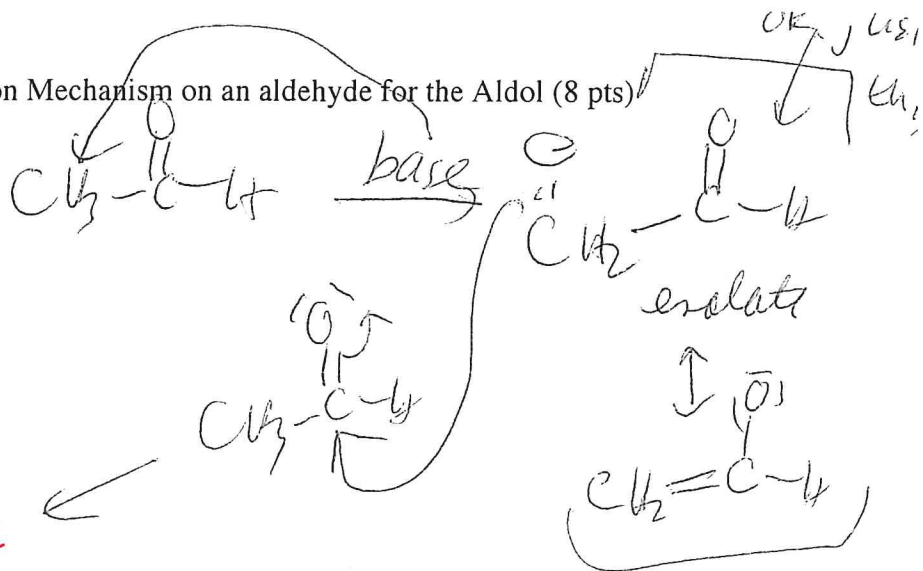 on Mechanism on an aldehyde for the Aldol (8 pts)
OK, us
th
CH3-C-H
O
base
CH2-C-H
O
enolate
CH3-C-H
O
CH2=C-H
O